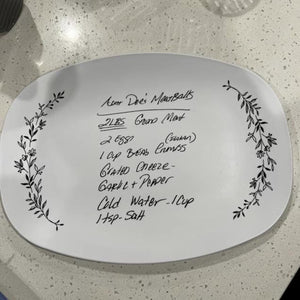 Aunt Dee's Meatballs
2 LBS Ground Meat
2 Eggs
(Italian)
1 Cup Bread Crumbs
Grated Cheeze -
Garlic + Pepper
Cold Water - 1 Cup
1 tsp - Salt